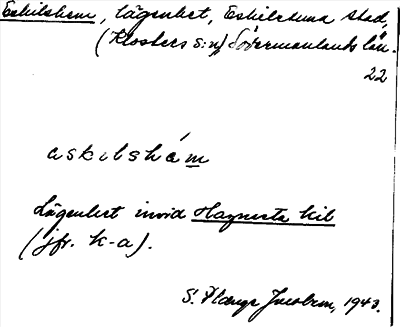 Eskilshem, lägenhet, Eskilstuna stad,
(Klosters s:n) Södermanlands län.
22
askilshám
Lägenhet invid Hagnesta kil
(jfr. k-a).
S. 1943.